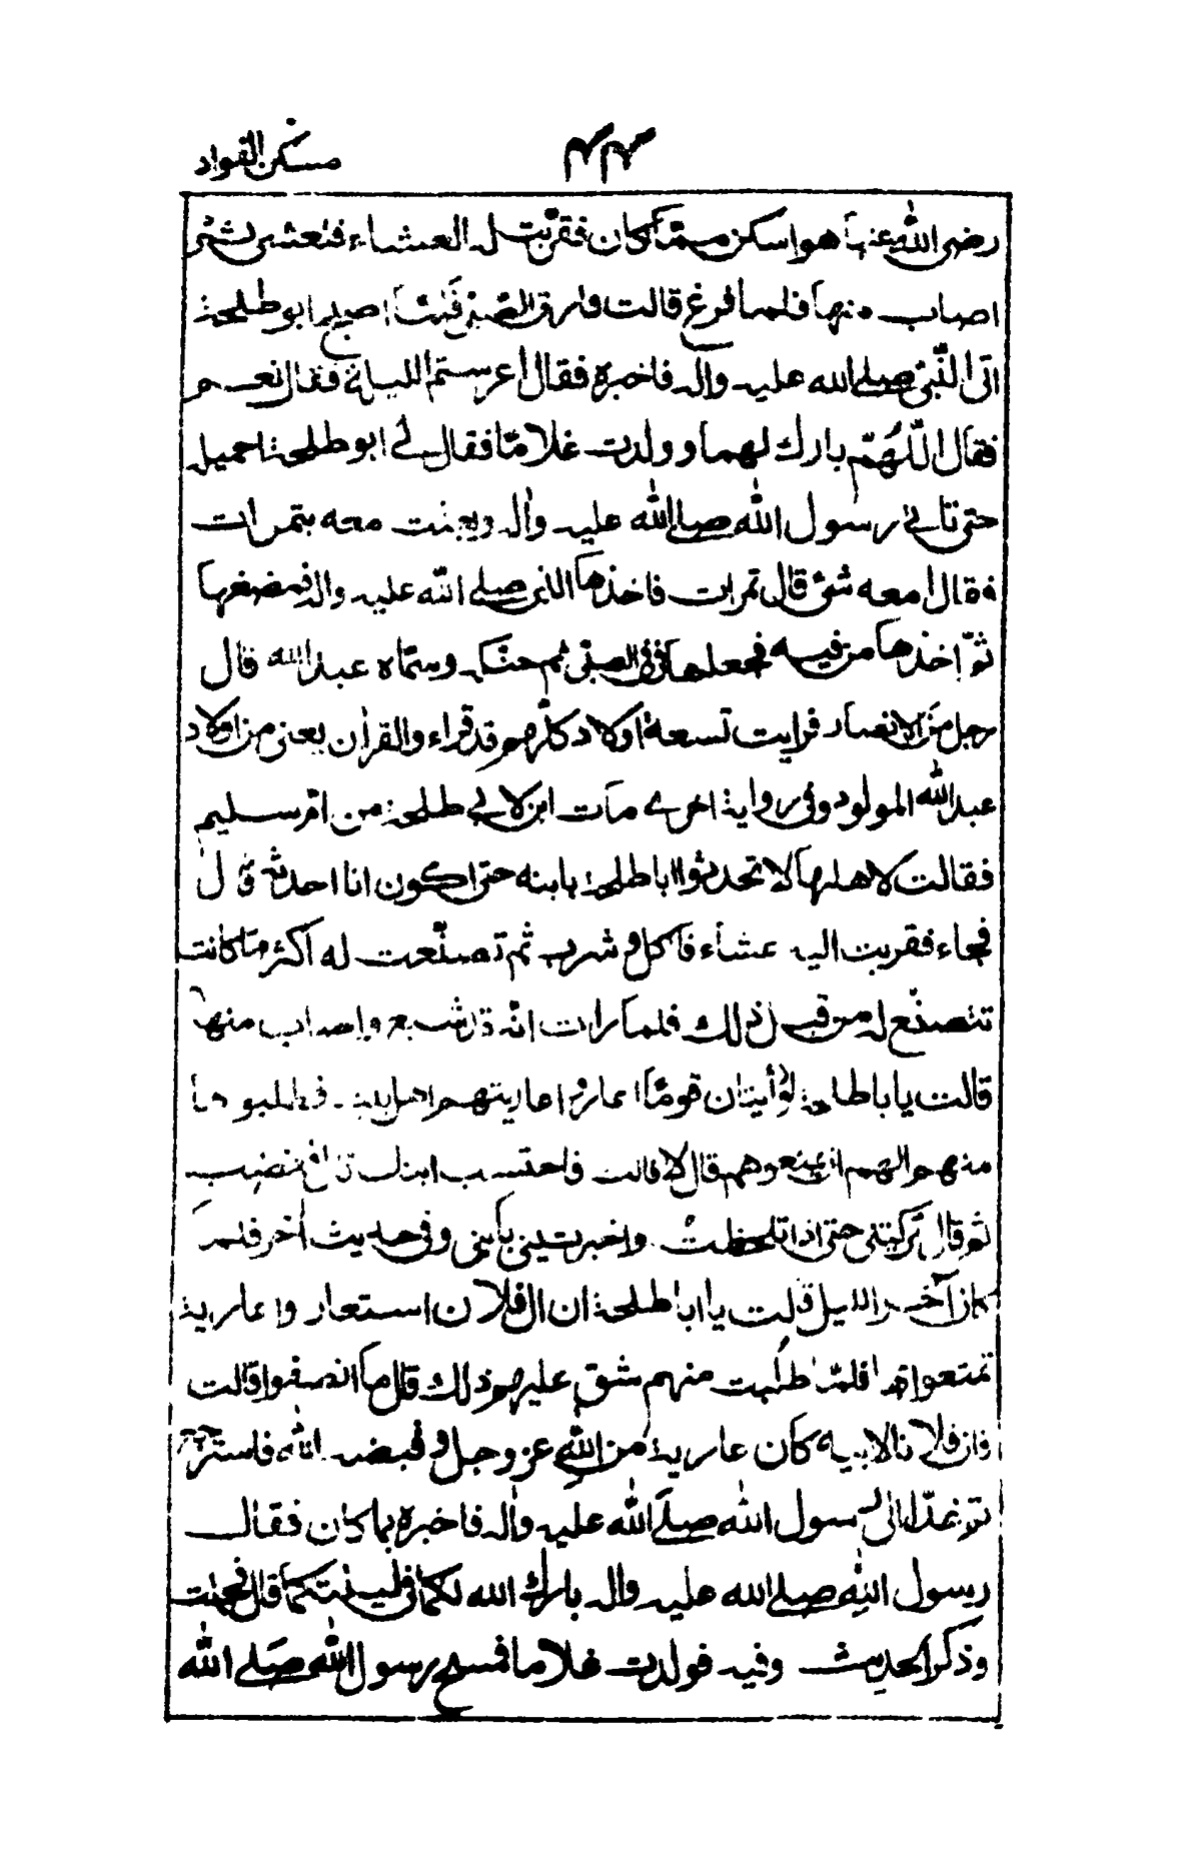 مسكن الفواد
۴۴
رضى الله عنها هو اسكن ممّا كان فقرّبت له العشاء فتعشى ثم
اصاب منها فلما فرغ قالت وارق الصبى فلمّا اصبح ابو طلحة
اتى النّبىّ صلے الله عليه وآله فاخبره فقال اعرستم الليلة فقال نعم
فقال اللّهُمّ بارك لهما وولدت غلامًا فقال لے ابو طلحة احمله
حتى تاتى رسول الله صلے الله عليه واله وبعثت معه بتمرات
فقال امعه شئ قال تمرات فاخذها النبى صلے الله عليه واله فمضغها
ثمّ اخذها من فيه فجعلها فى فى الصبىّ ثم حنّكه وسمّاه عبد الله قال
رجل من الانصار فرايت تسعة اولاد كلّهم قد قراءوا القران يعنى من اولاد
عبد الله المولود وفى رواية اخرے مات ابن لابے طلحة من امّ سليم
فقالت لاهلها لا تحدثوا ابا طلحة بابنه حتى اكون انا احدثه قال
فجاء فقربت اليه عشاء فاكل وشرب ثم تصنّعت له اكثر ما كانت
تتصنّع له من قبل ذلك فلما رات انّه قد شبع واصاب منها
قالت يا با طلحة لو أيت ان قومًا اعاروا عاريتهم اهل بيت فطلبوها
منهم الهم ان يمنعوهم قال لا قالت فاحتسب ابنك قال فغضب
ثم قال تركتنى حتى اذا تلطخت واخبرتينى بابنى وفى حديث اخر فلما
كان آخر الليل قالت يا ابا طلحة ان ال فلان استعاروا عارية
تمتعوا بها فلمّا طلبت منهم شق عليهم ذلك قال ما انصفوا قالت
فان فلانا لابيه كان عارية من الله عز وجل وقبضه الله فاسترجع
ثم غدا الى رسول الله صلے الله عليه واله فاخبره بما كان فقال
رسول الله صلے الله عليه واله بارك الله لكما فى ليلتكما قال فحملت
وذكر الحديث وفيه فولدت غلاما فمسح رسول الله صلے الله